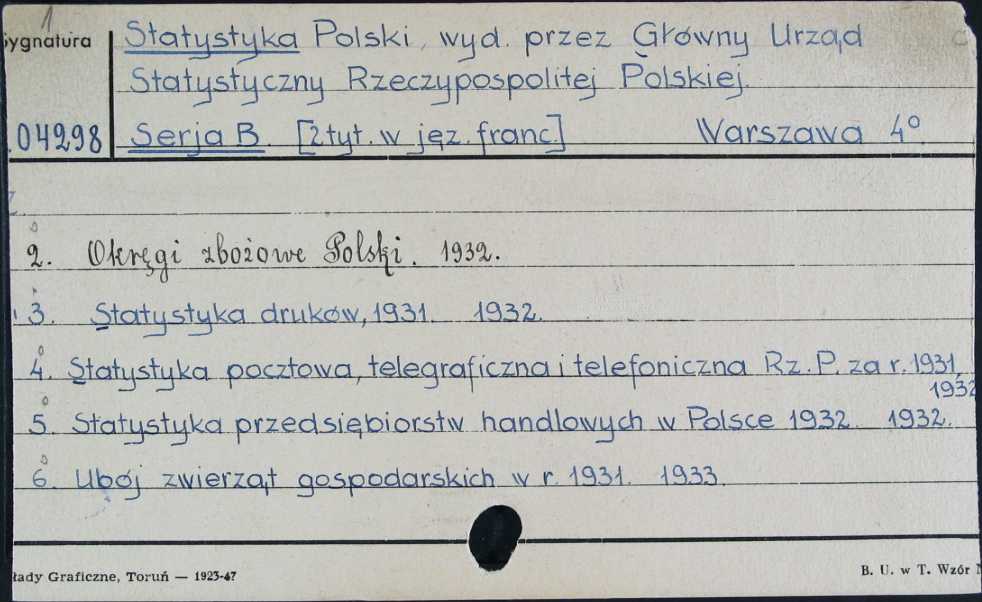 1
Sygnatura
Statystyka Polski, wyd. przez Główny Urząd
Statystyczny Rzeczypospolitej Polskiej.
04298
Serja B. [2 tyt. w jęz. franc.] Warszawa 4°.
2. Okręgi zbożowe Polski. 1932.
3. Statystyka druków, 1931. 1932.
4. Statystyka pocztowa, telegraficzna i telefoniczna Rz. P. za r. 1931,
1932
5. Statystyka przedsiębiorstw handlowych w Polsce 1932 1932.
6. Ubój zwierząt gospodarskich w r. 1931. 1933.
łady Graficzne, Toruń — 1923-47
B. U. w T. Wzór